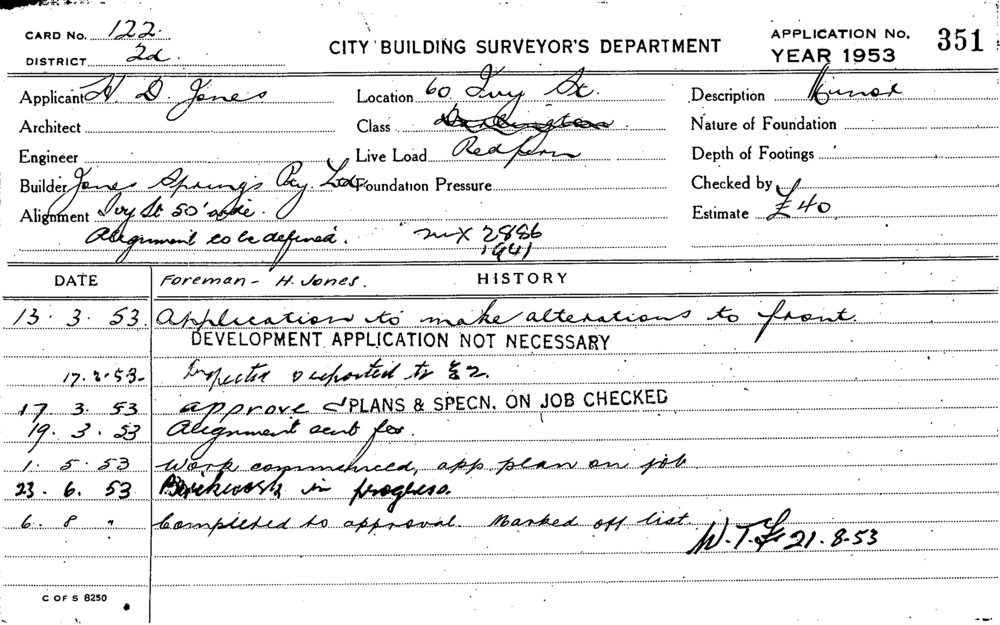 CARD No. 122. CITY BUILDING SURVEYOR'S DEPARTMENT APPLICATION No. 351
DISTRICT 2d. YEAR 1953
Applicant H. D. Jones Location 60 Ivy St. Description Minor
Architect Class Darlington Nature of Foundation
Engineer Live Load Redfern Depth of Footings
Builder Jones Springs Pty Ltd Foundation Pressure Checked by
Alignment Ivy St 50' wide. Estimate £40
Alignment to be defined. 2886
1941
DATE Foreman - H. Jones. HISTORY
13. 3. 53 Application to make alterations to front.
DEVELOPMENT APPLICATION NOT NECESSARY
17.3.53- Inspected & reported to
17 3. 53 approve PLANS & SPECN. ON JOB CHECKED
19. 3. 53 Alignment sent for.
1. 5. 53 Work commenced, app plan on job
23. 6. 53 Brickwork in progress.
6. 8 " Completed to approval. Marked off list.
W.T. 21.8.53
C OF S 8250